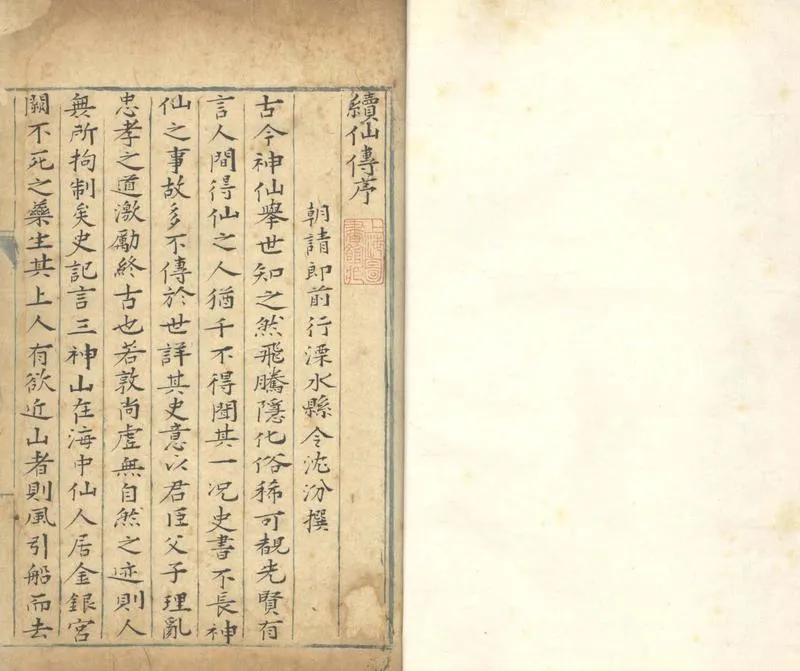 續仙傳序
朝請郎前行溧水縣令沈汾撰
古今神仙舉世知之然飛騰隱化俗稀可覩先賢有
言人間得仙之人猶千不得聞其一况史書不長神
仙之事故多不傳於世詳其史意以君臣父子理亂
忠孝之道激勵終古也若敦尚虛無自然之迹則人
無所拘制矣史記言三神山在海中仙人居金銀宮
闕不死之藥生其上人有欲近山者則風引船而去